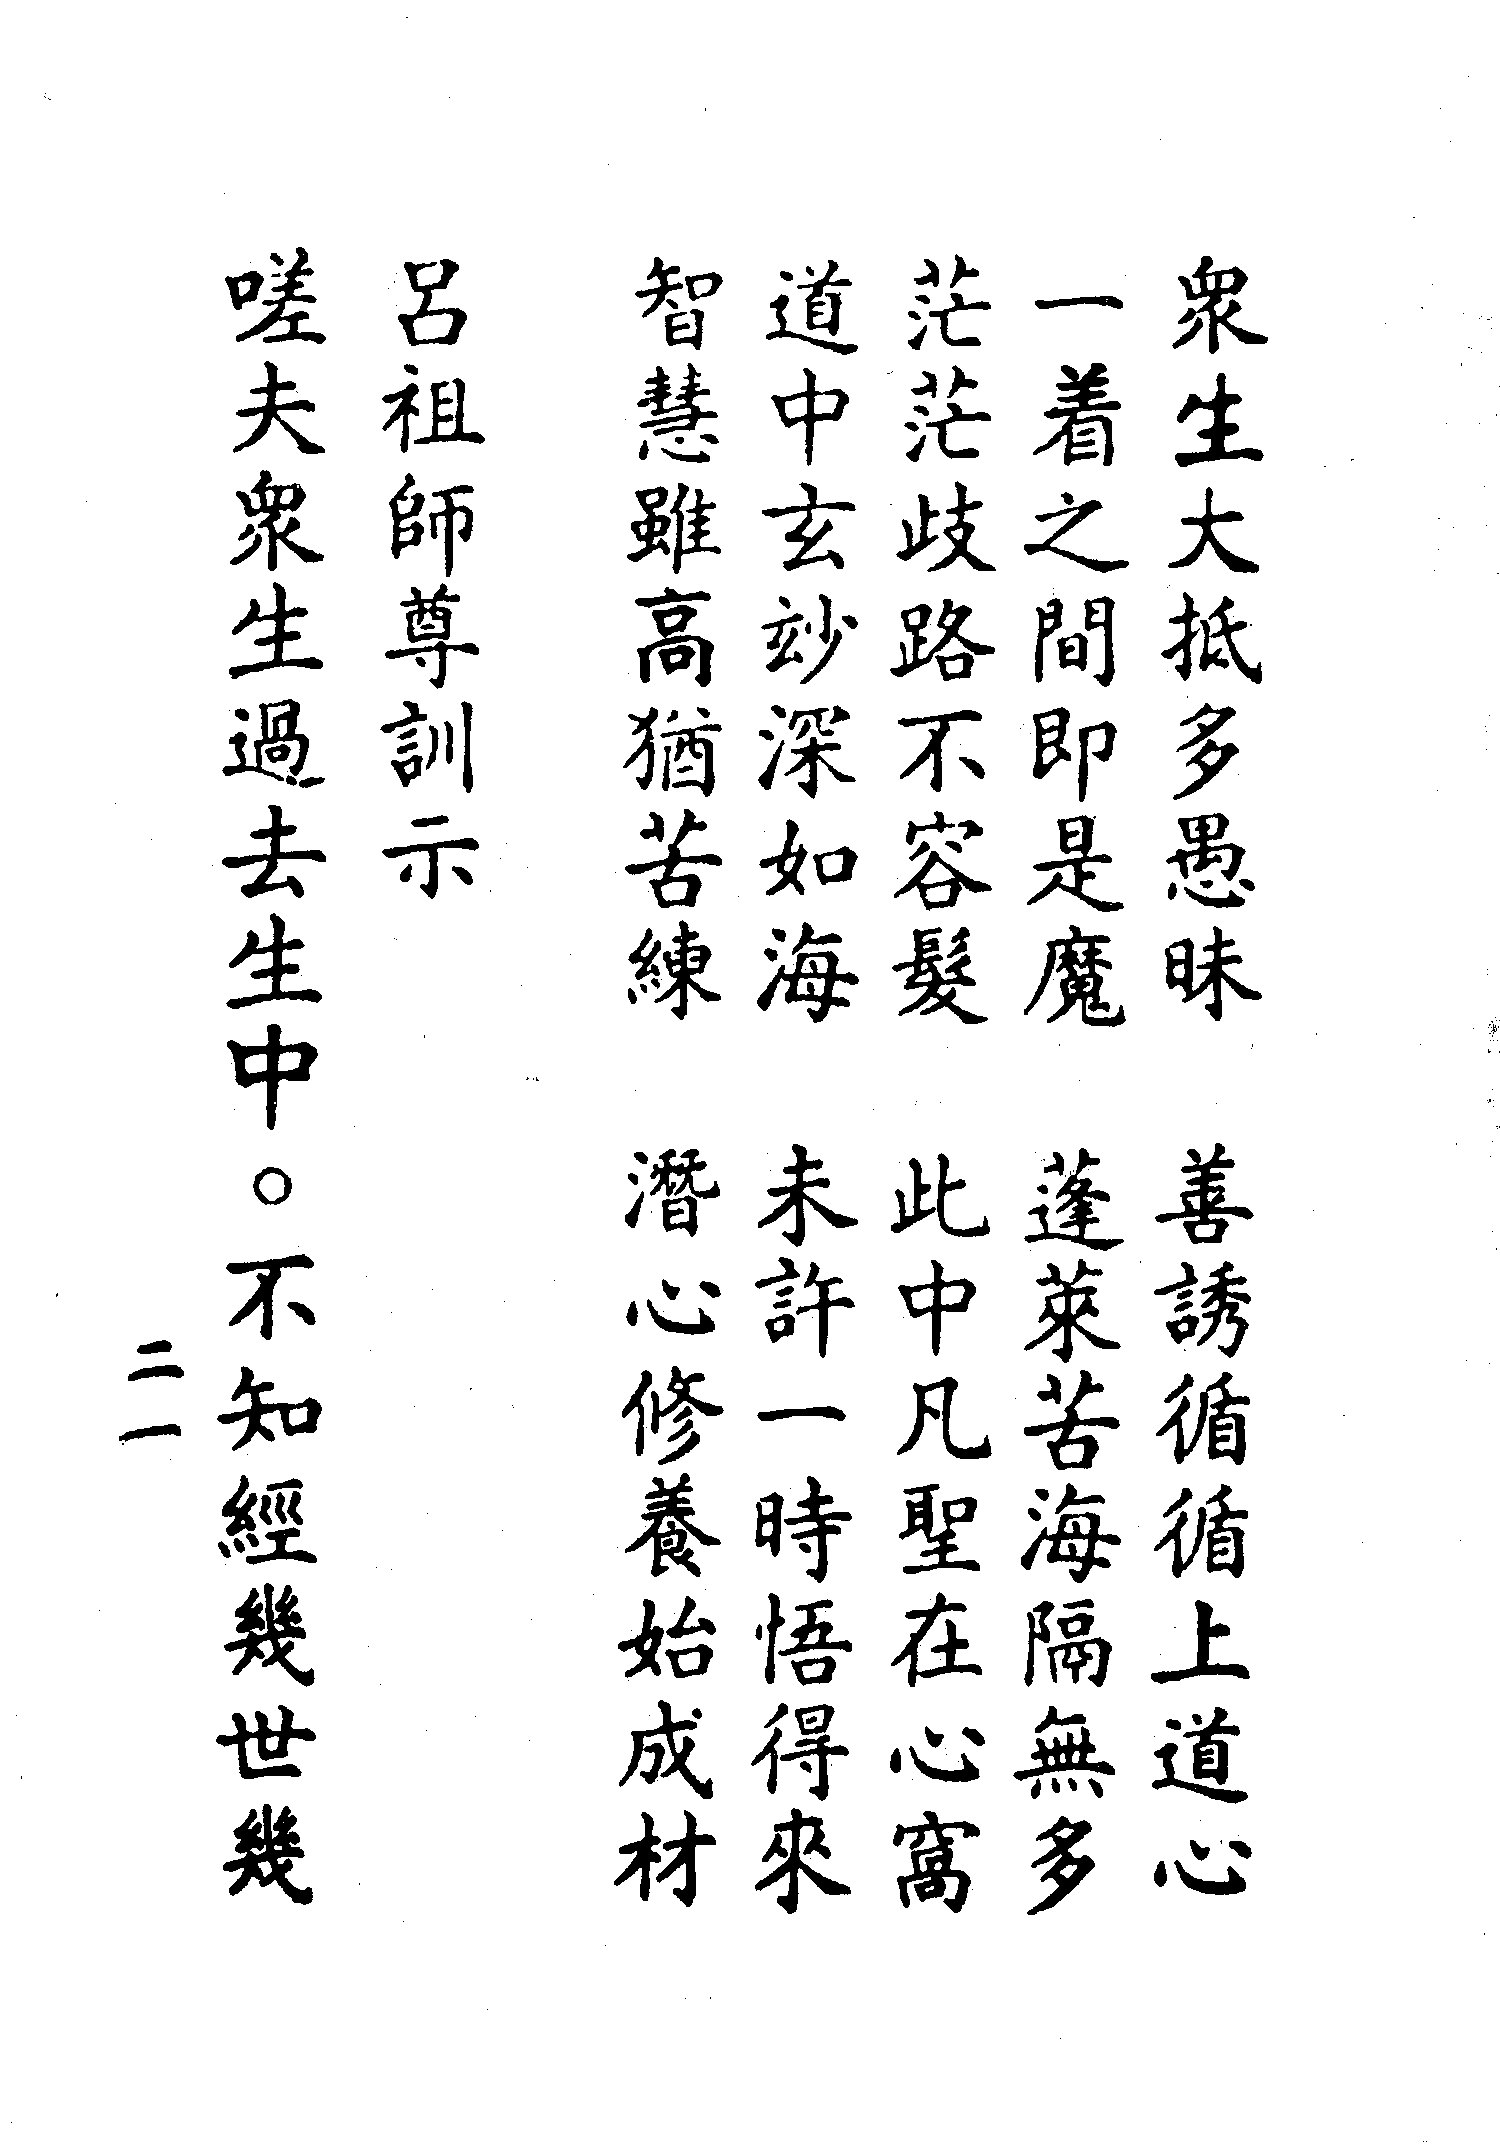 眾生大抵多愚昧　善誘循循上道心
一着之間即是魔　蓬萊苦海隔無多
茫茫歧路不容髮　此中凡聖在心窩
道中玄玅深如海　未許一時悟得來
智慧雖高猶苦練　潛心修養始成材
呂祖師尊訓示
嗟夫眾生過去生中。不知經幾世幾
二一